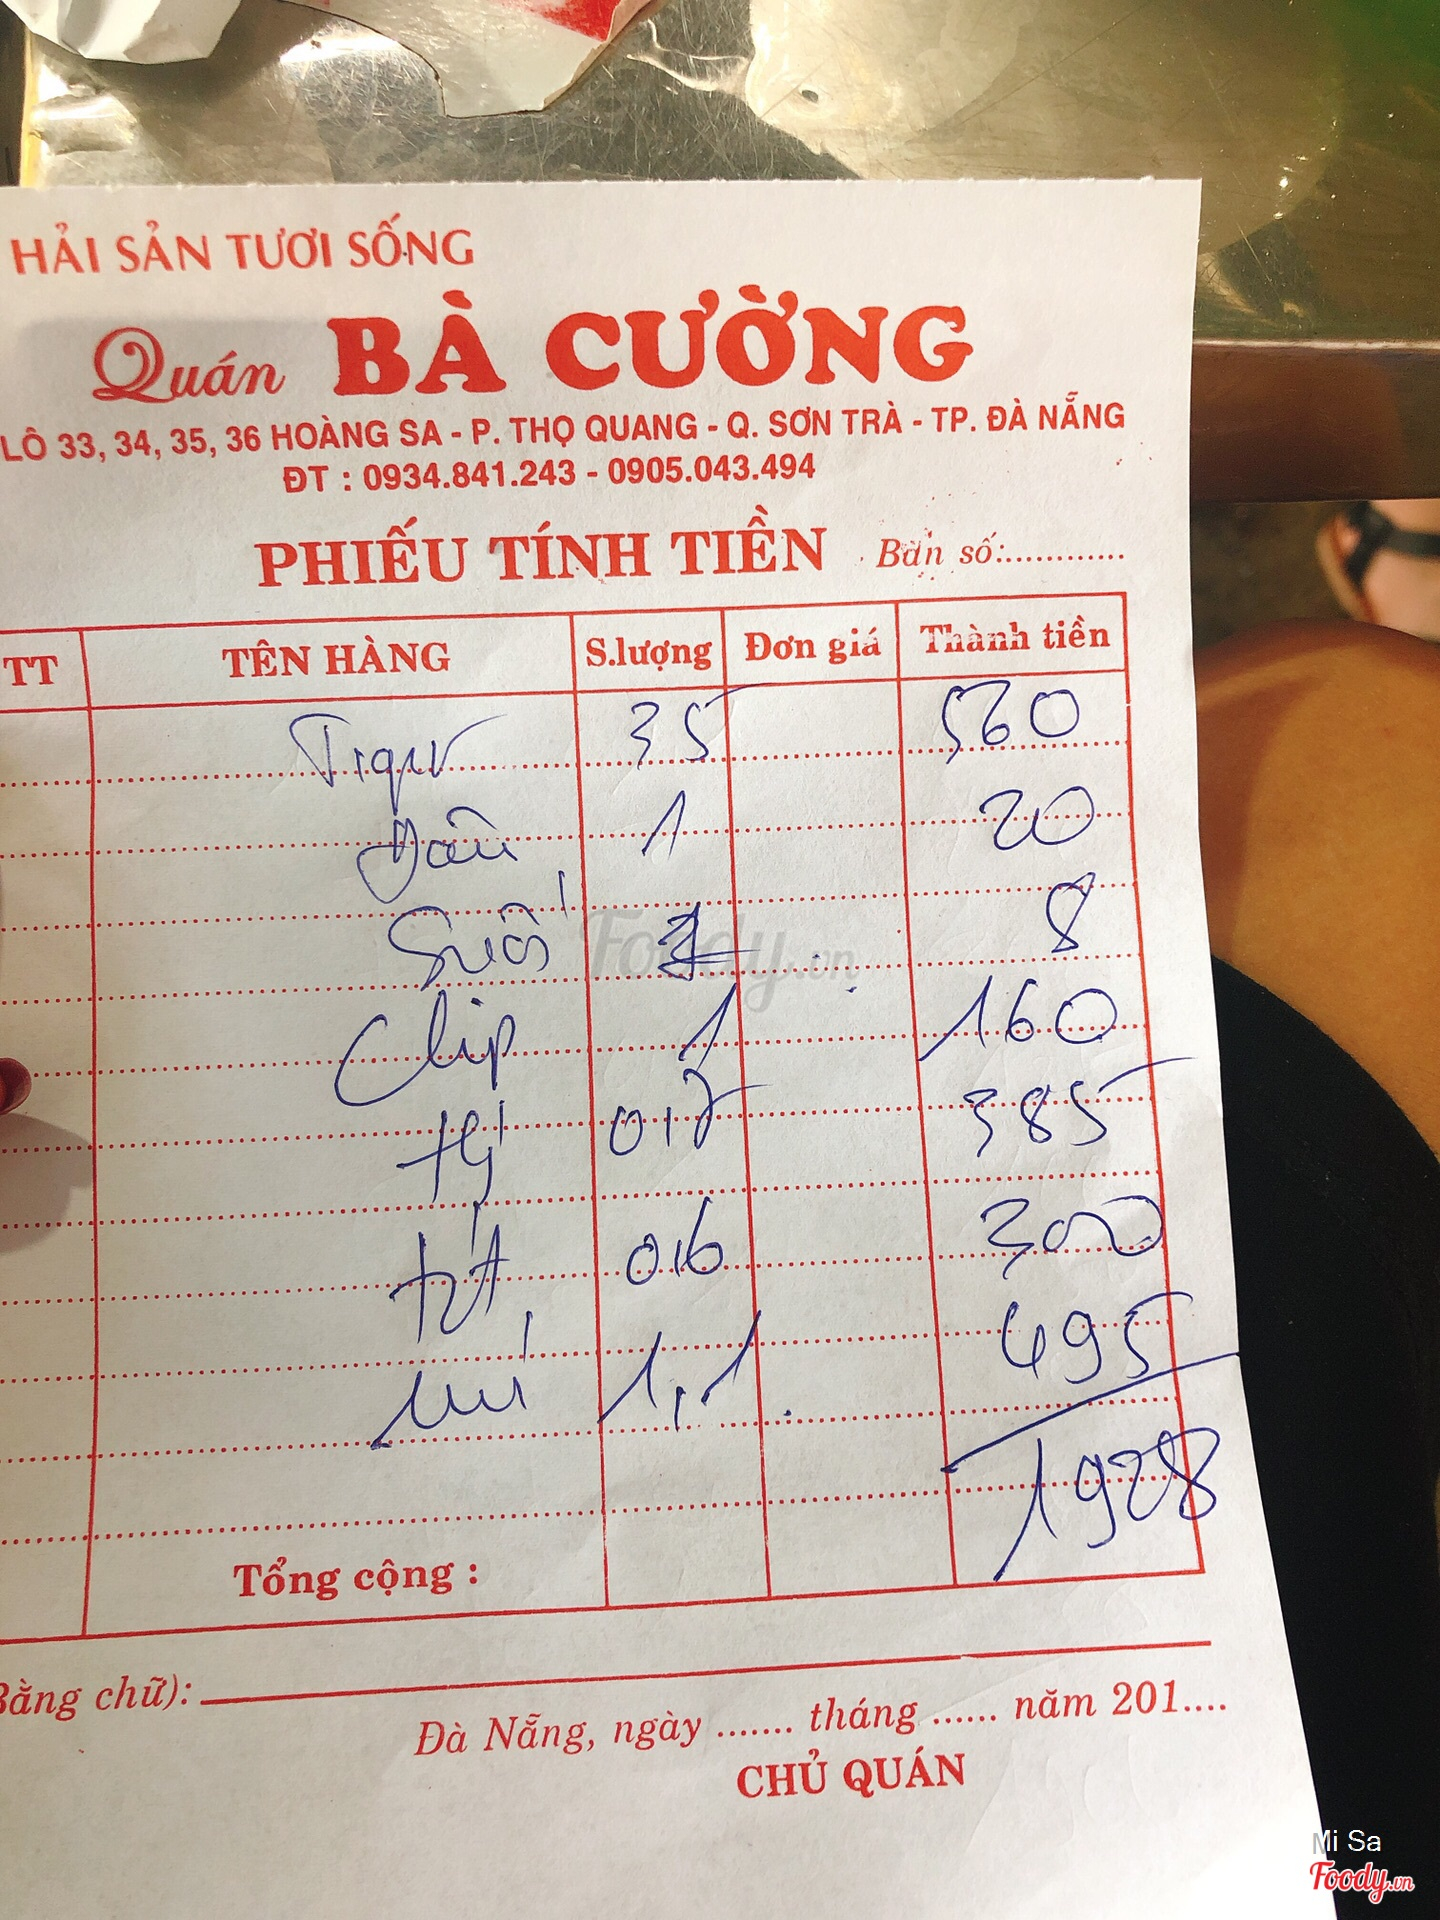 HẢI SẢN TƯƠI SỐNG
Quán BÀ CƯỜNG
LÔ 33, 34, 35, 36 HOÀNG SA - P. THỌ QUANG - Q. SƠN TRÀ - TP. ĐÀ NẴNG
ĐT : 0934.841.243 - 0905.043.494
PHIẾU TÍNH TIỀN Bàn số:............
TT TÊN HÀNG S.lượng Đơn giá Thành tiền
Tiger 35 560
1 20
Suối 8
Clip 1 160
0,7 385
0,6 300
1,1 495
1928
Tổng cộng :
Bằng chữ):
Đà Nẵng, ngày ....... tháng ...... năm 201....
CHỦ QUÁN
Foody.vn
Mi Sa
Foody.vn